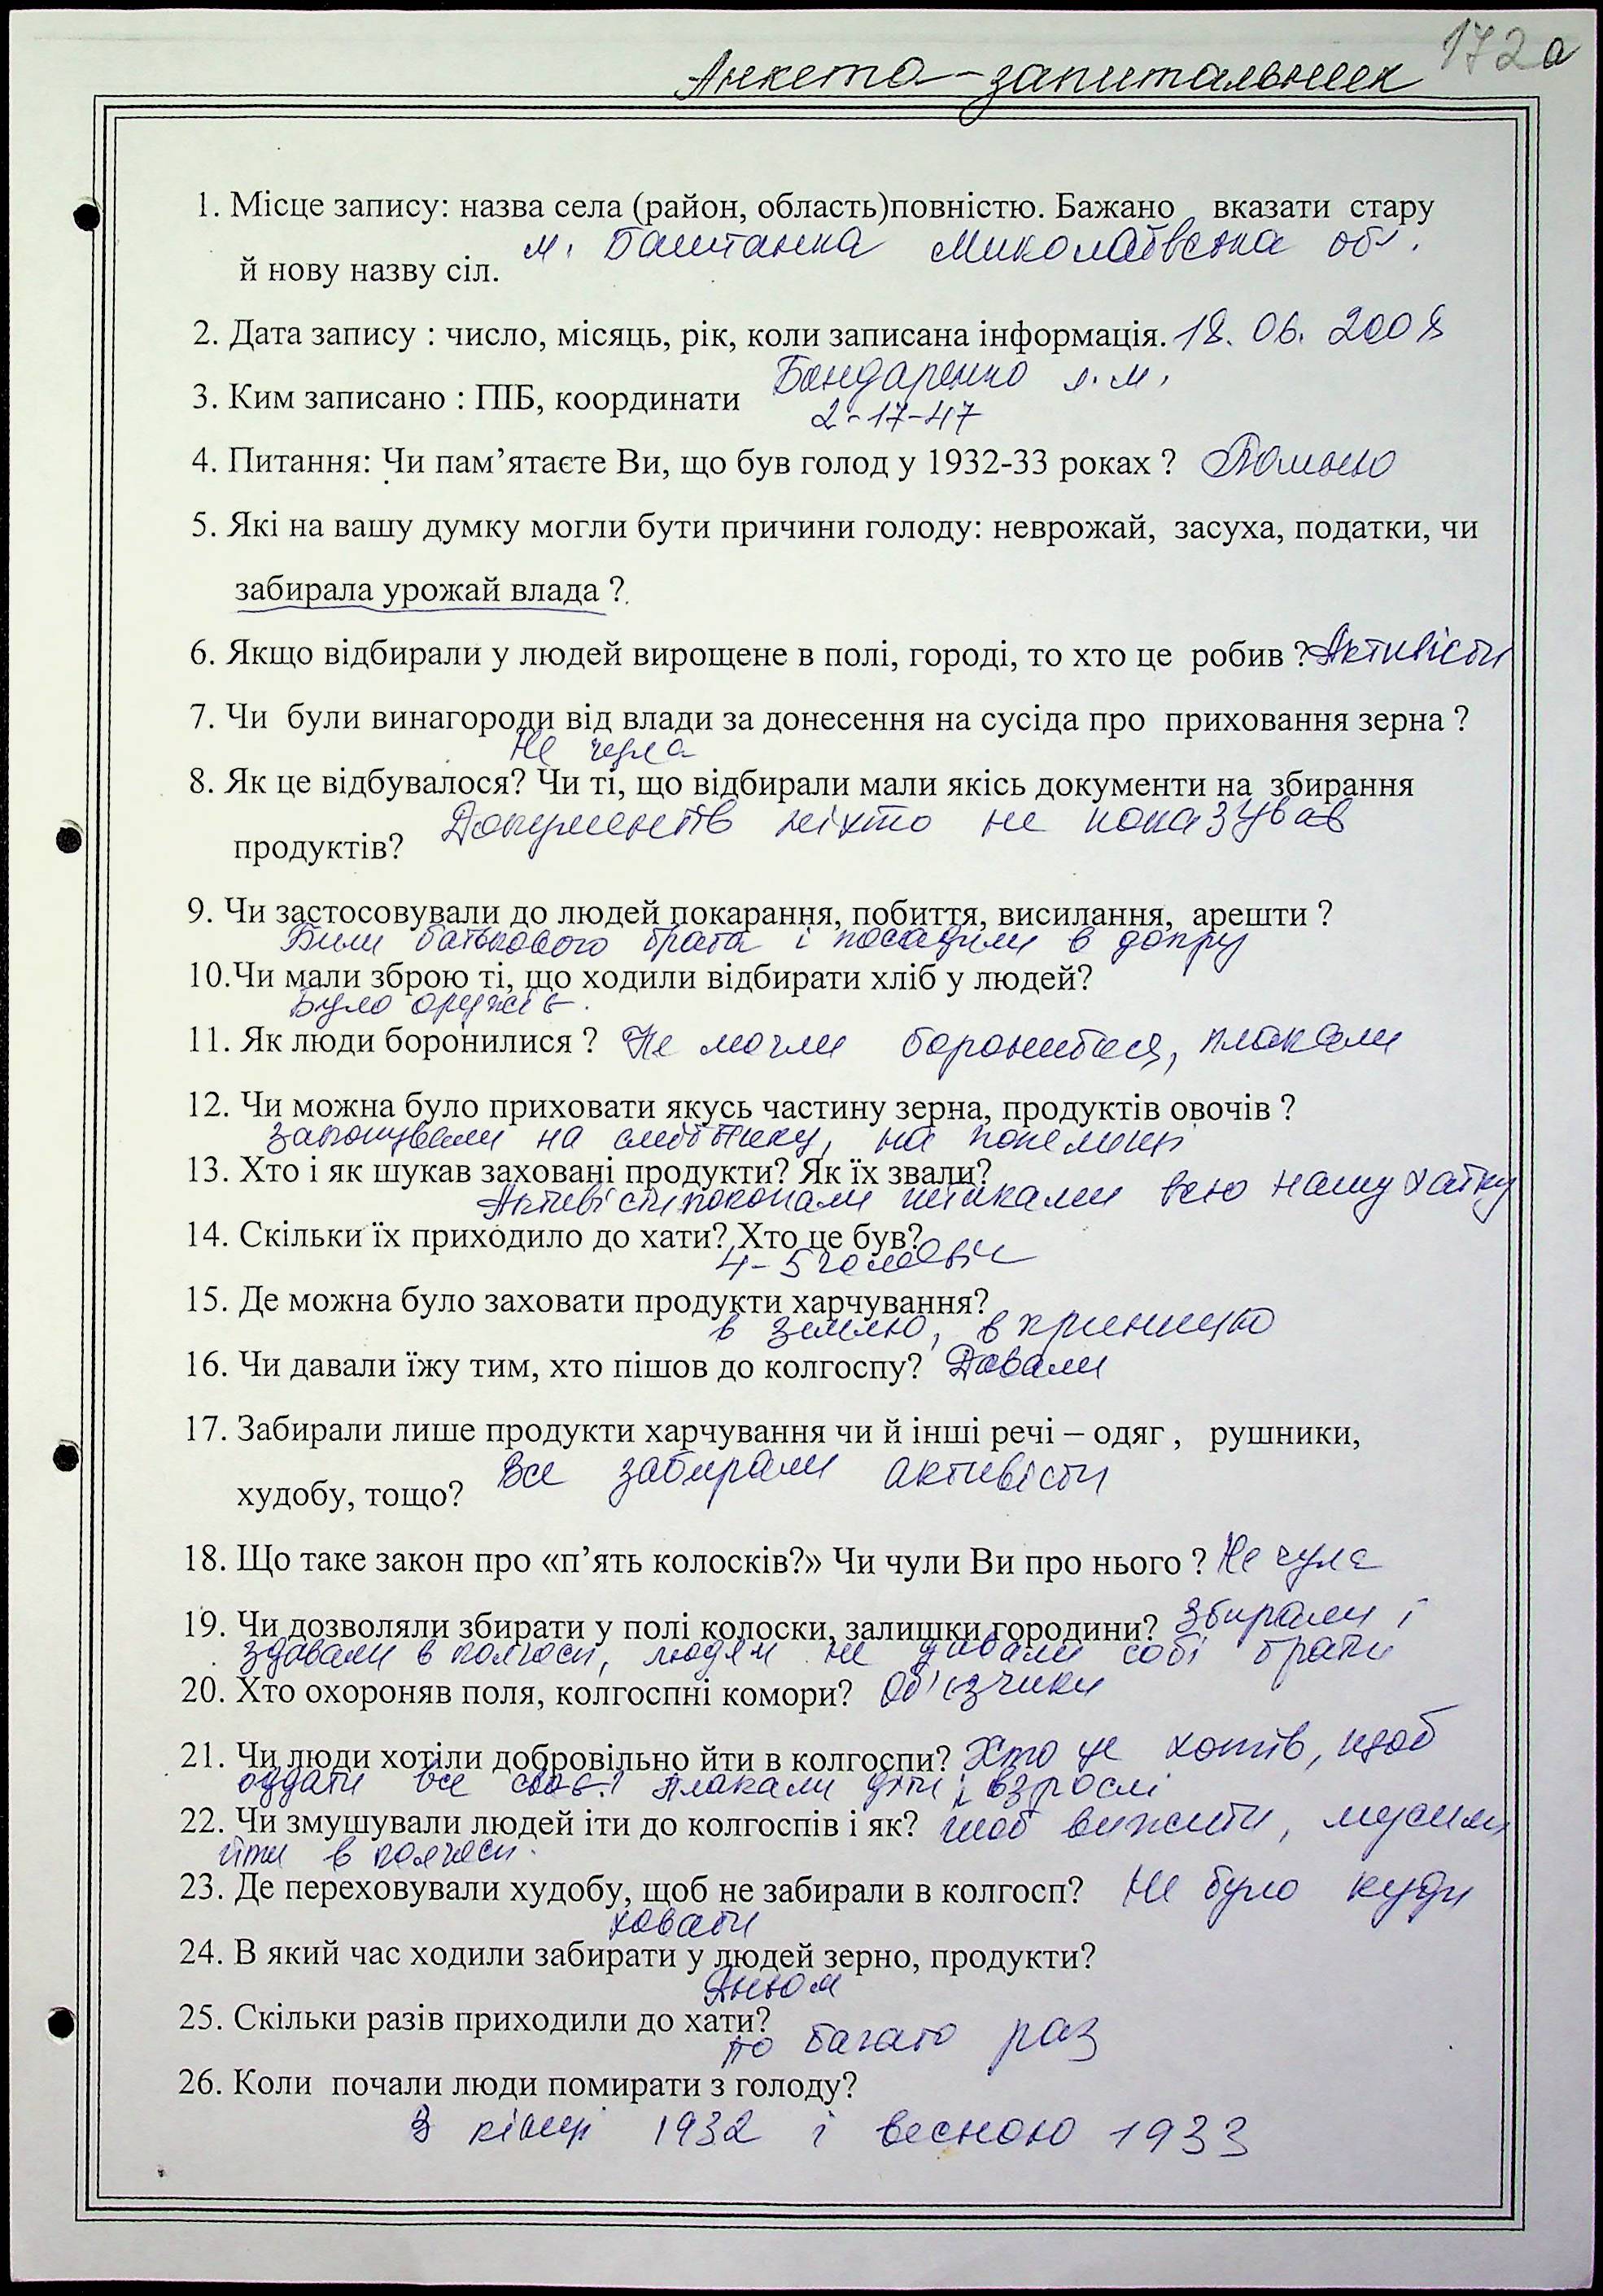 172а
Анкета-запитальник
1. Місце запису: назва села (район, область)повністю. Бажано вказати стару
м. Баштанка Миколаївська обл.
й нову назву сіл.
2. Дата запису : число, місяць, рік, коли записана інформація. 18. 06. 2008
Бондаренко Л. М.
3. Ким записано : ПІБ, координати
2-17-47
4. Питання: Чи пам’ятаєте Ви, що був голод у 1932-33 роках ? Помню
5. Які на вашу думку могли бути причини голоду: неврожай, засуха, податки, чи
забирала урожай влада ?
6. Якщо відбирали у людей вирощене в полі, городі, то хто це робив ? Активісти
7. Чи були винагороди від влади за донесення на сусіда про приховання зерна ?
Не чула
8. Як це відбувалося? Чи ті, що відбирали мали якісь документи на збирання
Документів ніхто не показував
продуктів?
9. Чи застосовували до людей покарання, побиття, висилання, арешти ?
Били батькового брата і посадили в допру
10.Чи мали зброю ті, що ходили відбирати хліб у людей?
Було оружіє.
11. Як люди боронилися ? Не могли боронитися, плакали
12. Чи можна було приховати якусь частину зерна, продуктів овочів ?
закопували на смітнику, на
13. Хто і як шукав заховані продукти? Як їх звали?
Активісти покопали піками всю нашу хатку
14. Скільки їх приходило до хати? Хто це був?
4-5 чоловік
15. Де можна було заховати продукти харчування?
в землю, в криницю
16. Чи давали їжу тим, хто пішов до колгоспу? Давали
17. Забирали лише продукти харчування чи й інші речі – одяг , рушники,
Все забирали активісти
худобу, тощо?
18. Що таке закон про «п’ять колосків?» Чи чули Ви про нього ? Не чула
19. Чи дозволяли збирати у полі колоски, залишки городини? Збирали і
здавали в колгосп, людям не давали собі брати
20. Хто охороняв поля, колгоспні комори? Об'їзчики
21. Чи люди хотіли добровільно йти в колгоспи? Хто це хотів, щоб
оддати все своє! Плакали діти і взрослі
22. Чи змушували людей іти до колгоспів і як? щоб вижити, мусили
йти в колгосп.
23. Де переховували худобу, щоб не забирали в колгосп? Не було куди
ховати
24. В який час ходили забирати у людей зерно, продукти?
Дньом
25. Скільки разів приходили до хати?
по багато раз
26. Коли почали люди помирати з голоду?
З кінця 1932 і весною 1933